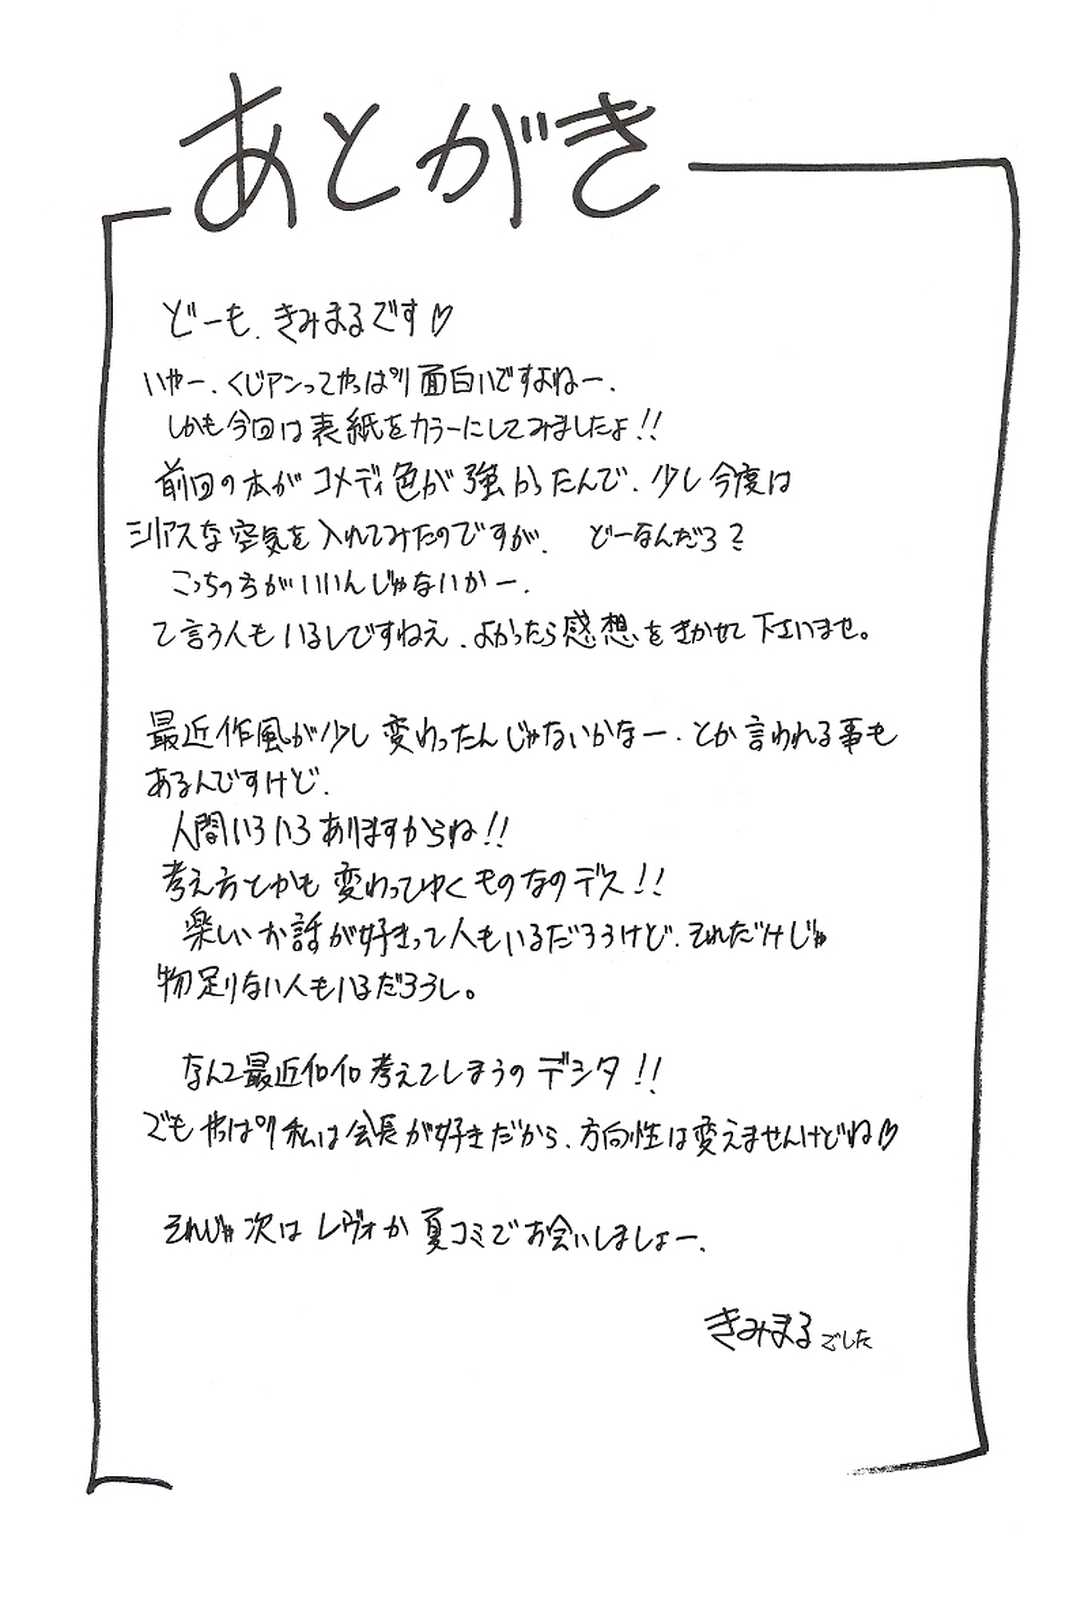 あとがき
どーも、きみまるです♡
いやー、くじアンってやっぱり面白いですよねー、
しかも今回は表紙をカラーにしてみましたよ!!
前回の本がコメディ色が強かったんで、少し今度は
シリアスな空気を入れてみたのですが、どーなんだろ?
こっちの方がいいんじゃないかー、
て言う人もいるしですねえ、よかったら感想をきかせて下さいませ。
最近作風が少し変わったんじゃないかなー、とか言われる事も
あるんですけど、
人間いろいろありますからね!!
考え方とかも変わってゆくものなのデス!!
楽しいお話が好きって人もいるだろうけど、それだけじゃ
物足りない人もいるだろうし。
なんて最近イロイロ考えてしまうのデシタ!!
でもやっぱり私は会長が好きだから、方向性は変えませんけどね♡
それじゃ次はレヴォか夏コミでお会いしましょー、
きみまるでした